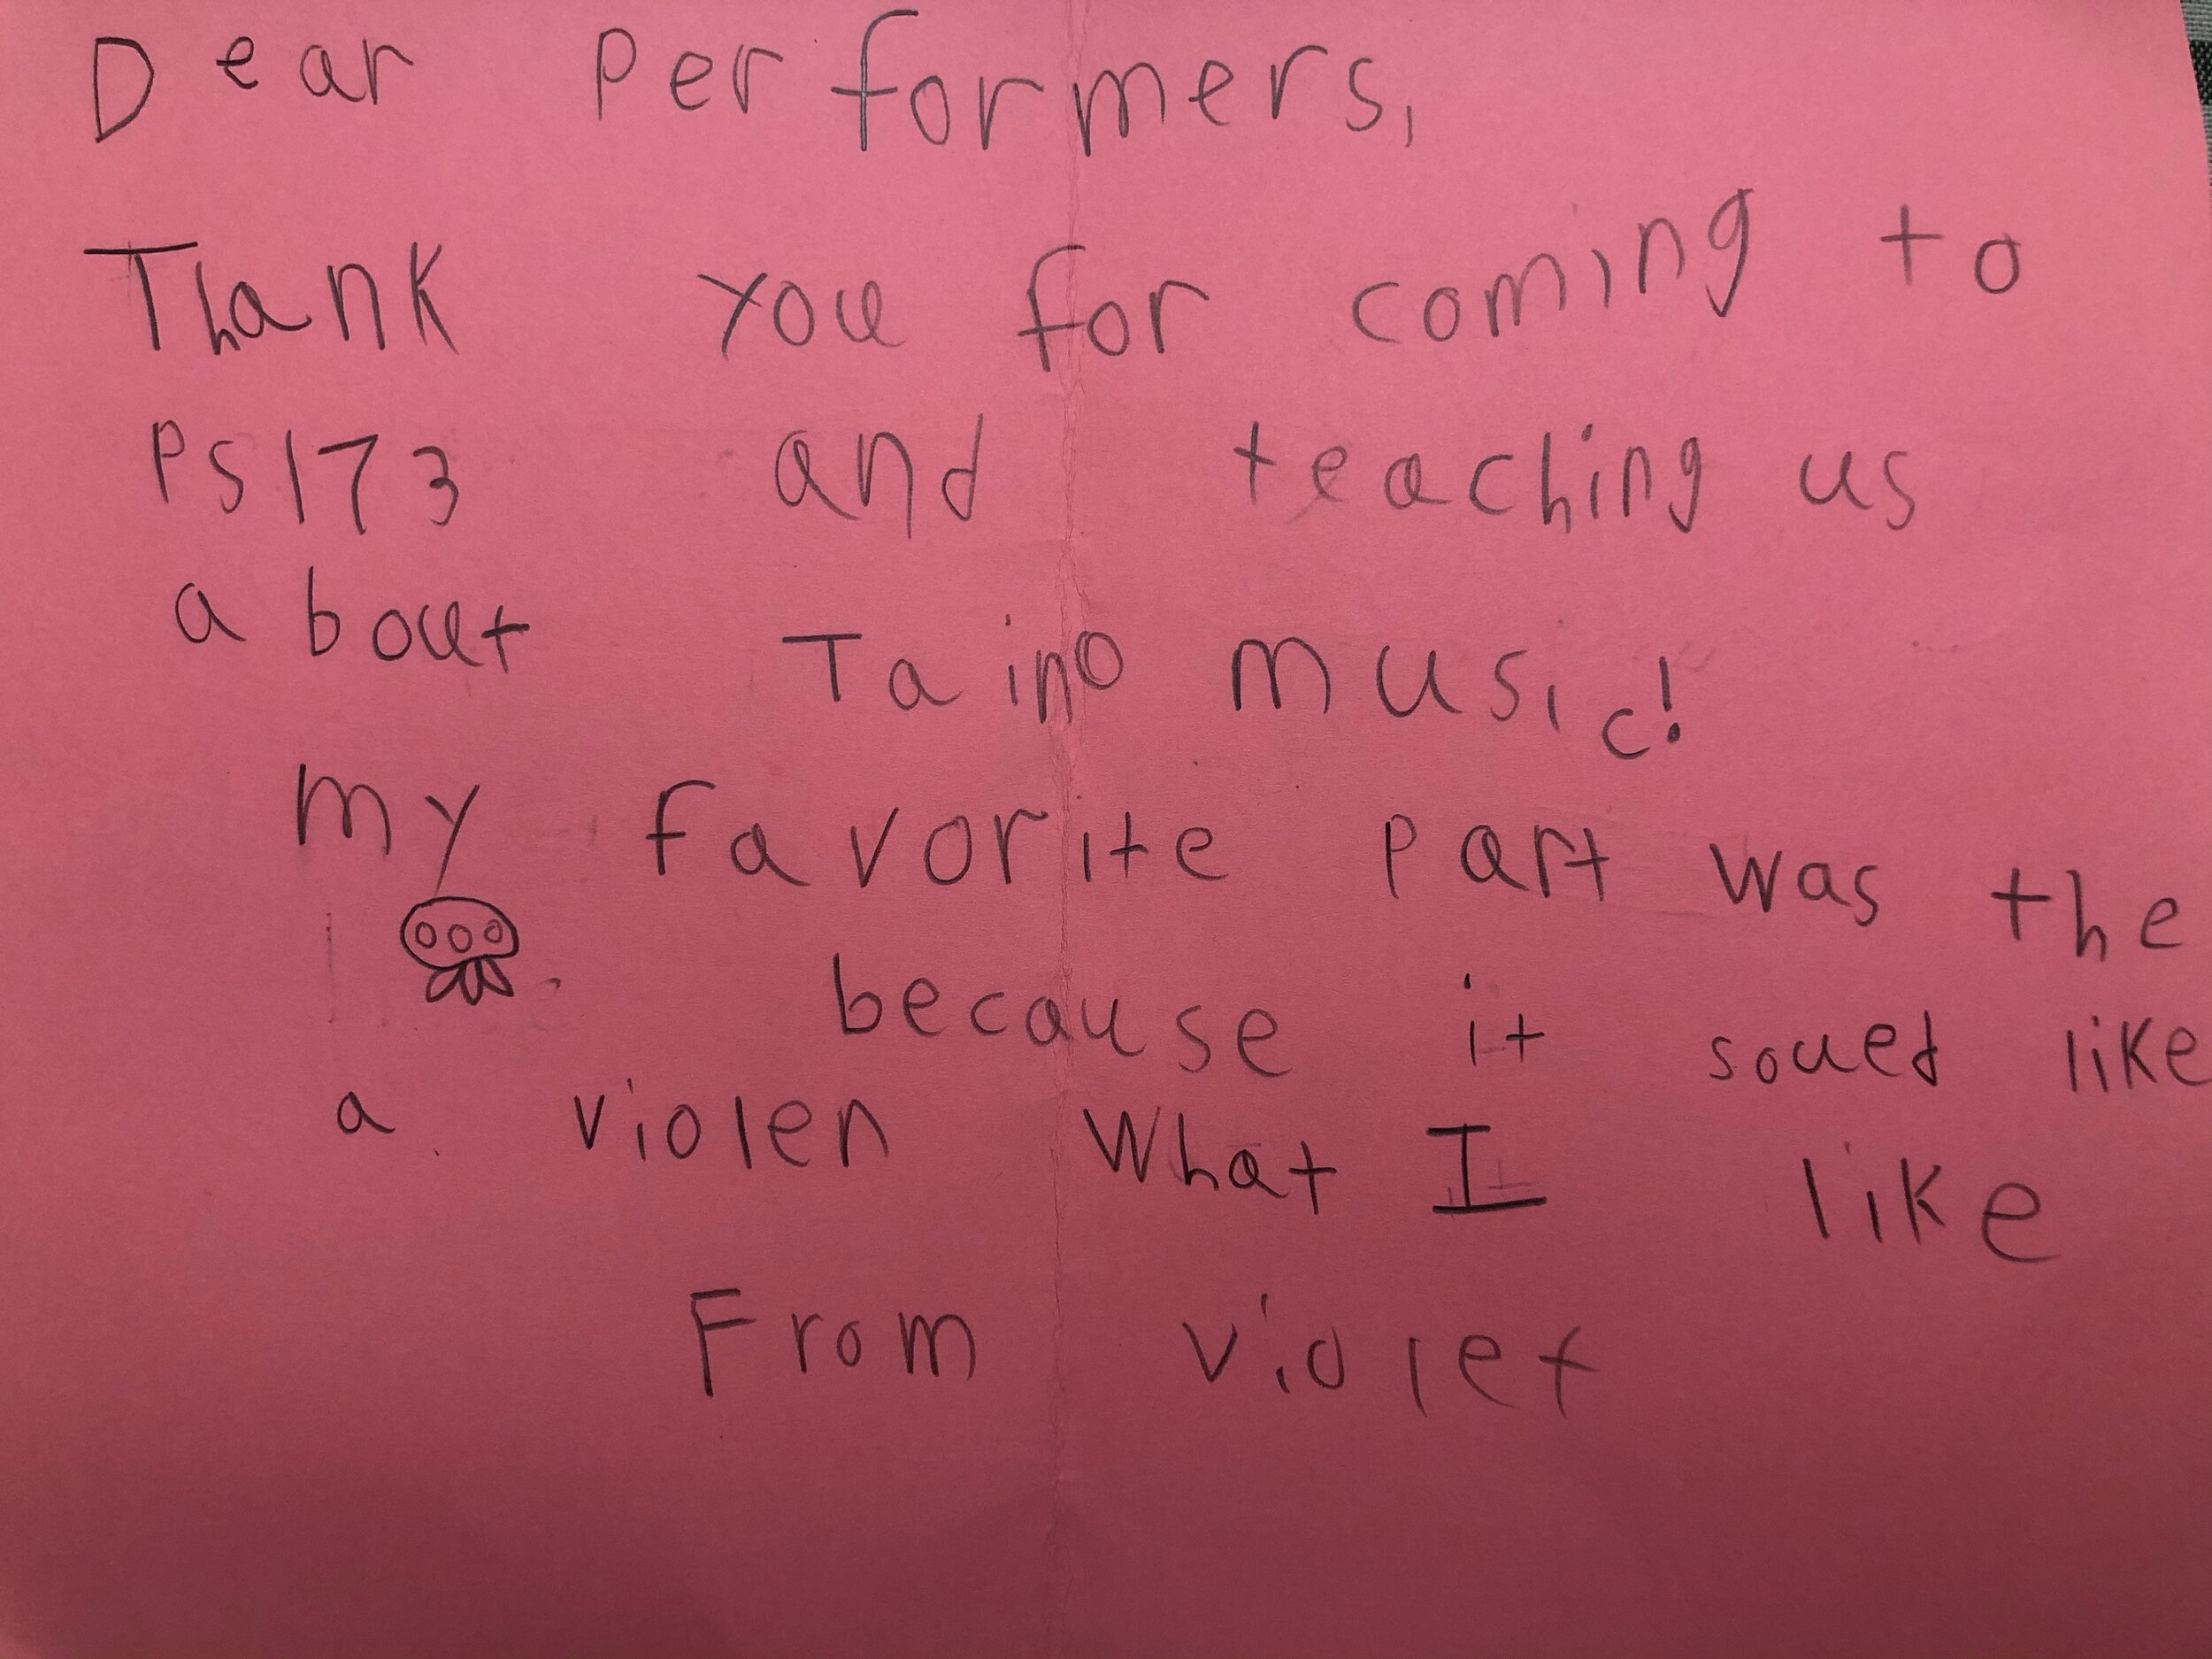 Dear Performers,
Thank you for coming to
PS173 and teaching us
about Taino music!
my favorite part was the
because it soued like
a violen What I like
From violet